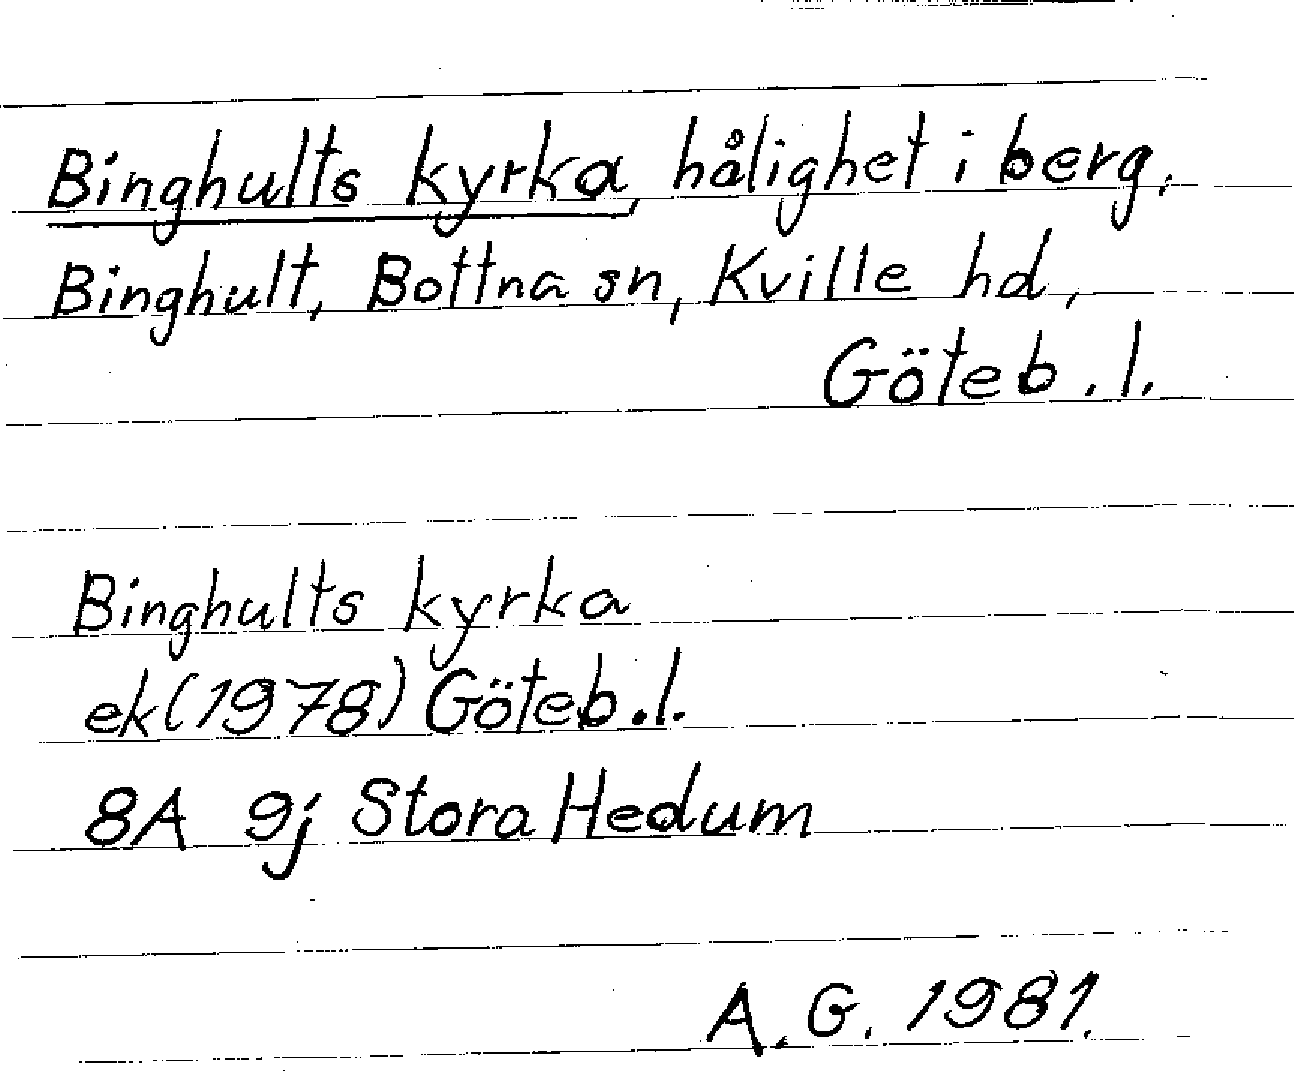 Binghults kyrka, hålighet i berg,
Binghult, Bottna sn, Kville hd,
Göteb. l.
Binghults kyrka
ek (1978) Göteb. l.
8A 9j Stora Hedum
A. G. 1981.